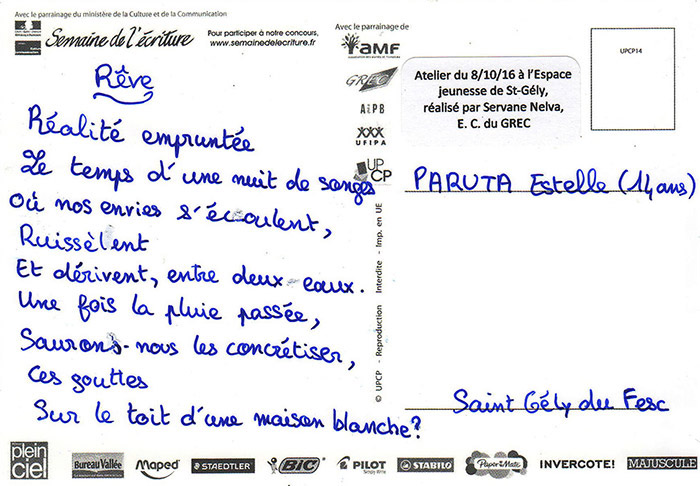 Avec le parrainage du ministère de la Culture et de la Communication
Semaine de l'écriture
Pour participer à notre concours,
www.semainedelecriture.fr
Avec le parrainage de
amf
GREC
AiPB
UFIPA
UP
CP
Atelier du 8/10/16 à l'Espace
jeunesse de St-Gély,
réalisé par Servane Nelva,
E. C. du GREC
UPCP14
Rêve
Réalité empruntée
Le temps d'une nuit de songes
Où nos envies s'écoulent,
Ruissèlent
Et dérivent, entre deux eaux.
Une fois la pluie passée,
Saurons-nous les concrétiser,
Ces gouttes
Sur le toit d'une maison blanche?
© UPCP - Reproduction Interdite - Imp. en UE
PARUTA Estelle (14 ans)
Saint Gély du Fesc
plein
ciel
Bureau Vallée
Maped
STAEDTLER
BIC
PILOT
STABILO
Paper Mate
INVERCOTE!
MAJUSCULE